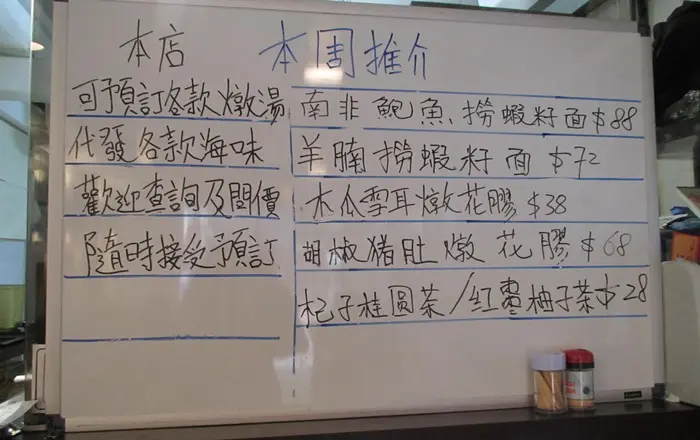 本店
可預訂各款燉湯
代發各款海味
歡迎查詢及問價
隨時接受預訂
本周推介
南非鮑魚撈蝦籽面$88
羊腩撈蝦籽面$72
木瓜雪耳燉花膠$38
胡椒猪肚燉花膠$68
杞子桂圆茶/红棗柚子茶$28